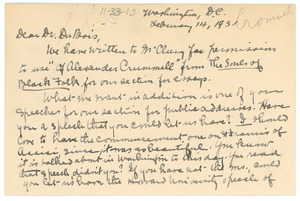 11-33-13
Washington, D.C.
February 14, 1931
Dear Dr. DuBois,
We have written to McClurg for permission
to use "Of Alexander Crummell" from The Souls of
Black Folk, for our section for essays.
What we want in addition is one of your
speeches for our section for public addresses. Have
you a speech that you could let us have? I should
love to have the commencement one on Francis of
Assisi since it was so beautiful. You know
it is talked about in Washington to this day. You read
that speech didn't you? If you have not the ms., and
you let us have the Howard University speech of